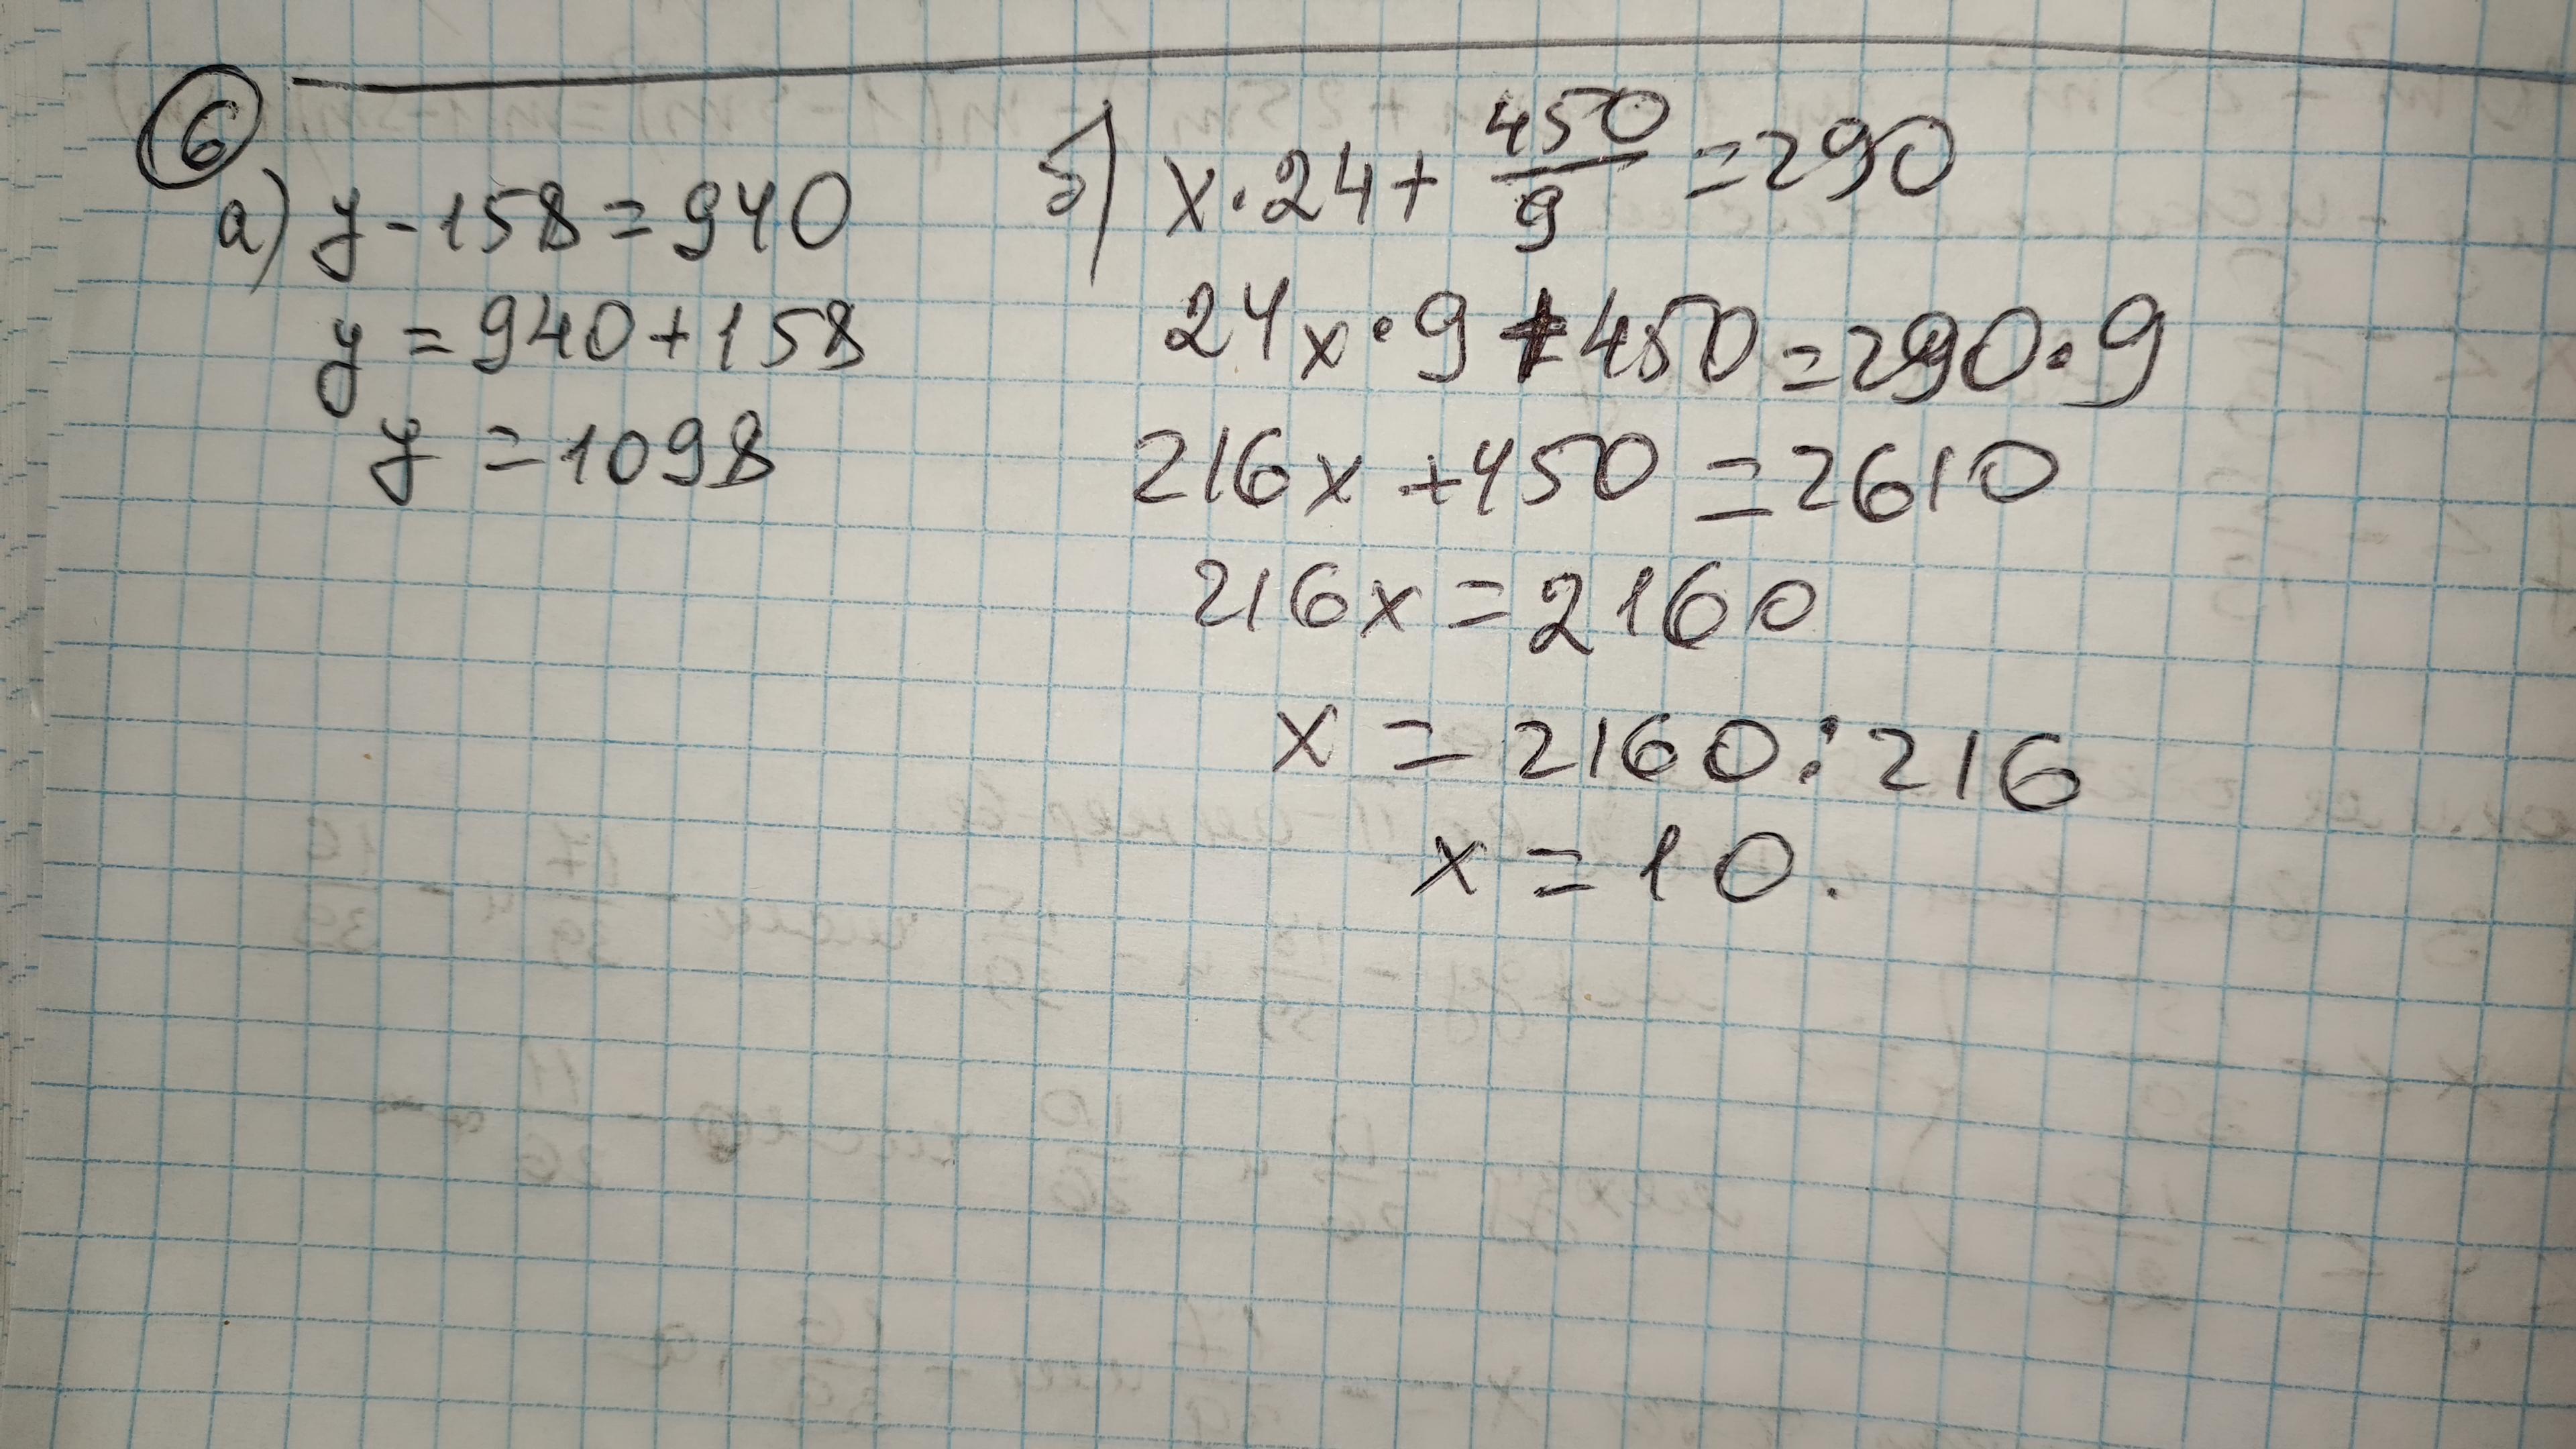 6
а) y - 158 = 940
y = 940 + 158
y = 1098
б) x · 24 + 450/9 = 290
24x · 9 + 450 = 290 · 9
216x + 450 = 2610
216x = 2160
x = 2160 : 216
x = 10.